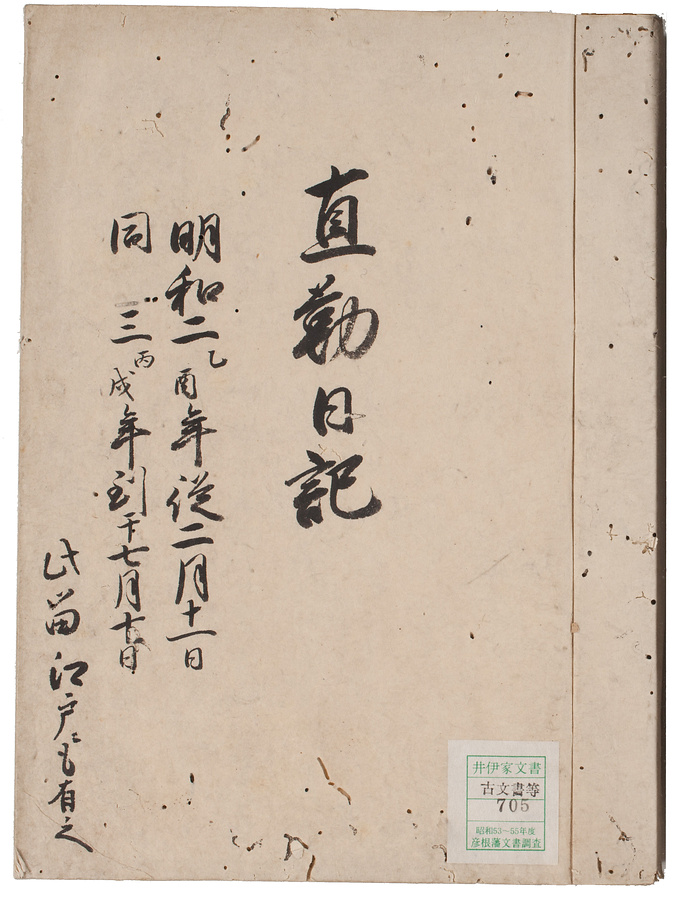 直勤日記
明和二乙酉年従二月十一日
同三丙戌年到于七月十日
此留江戸ニも有之
井伊家文書
古文書等
705
昭和53~55年度
彦根藩文書調査